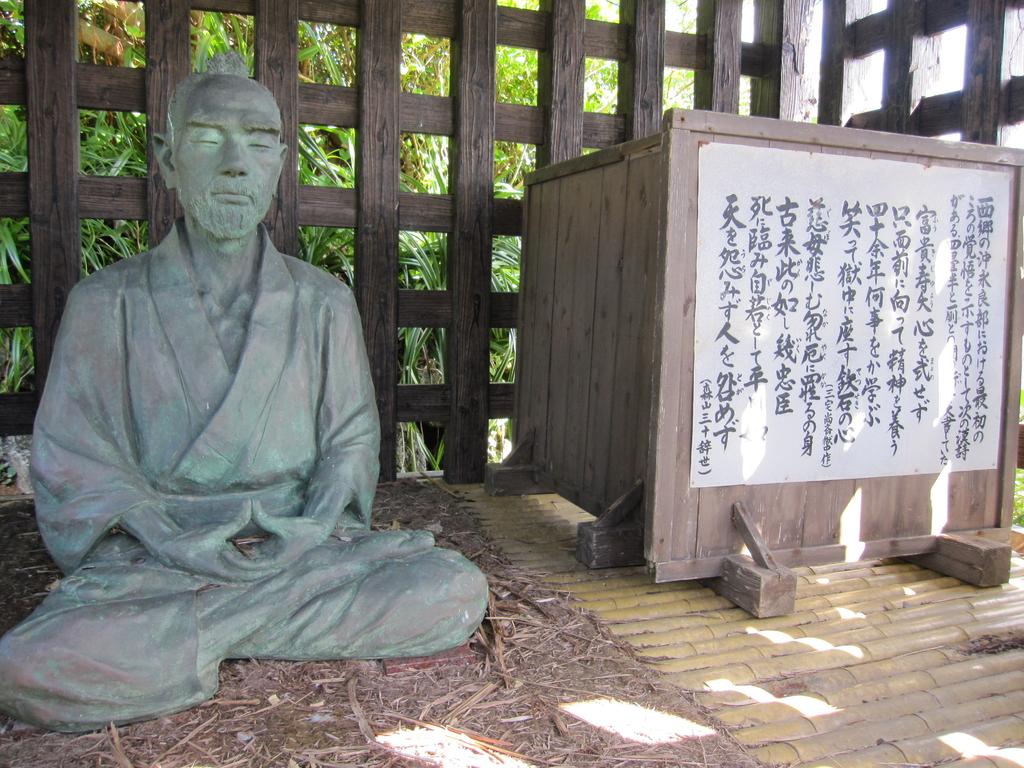 西郷の沖永良部における最初の
心の覚悟を示すものとして次の漢詩
がある
富貴寿夭心を弐せず
只面前に向って精神を養う
四十余年何事をか学ぶ
笑って獄中に座す鉄石の心
慈母悲しむ勿れ厄に罹るの身
古来此の如し幾忠臣
死に臨み自若として平
天を怨みず人を咎めず
(森山三十辞世)